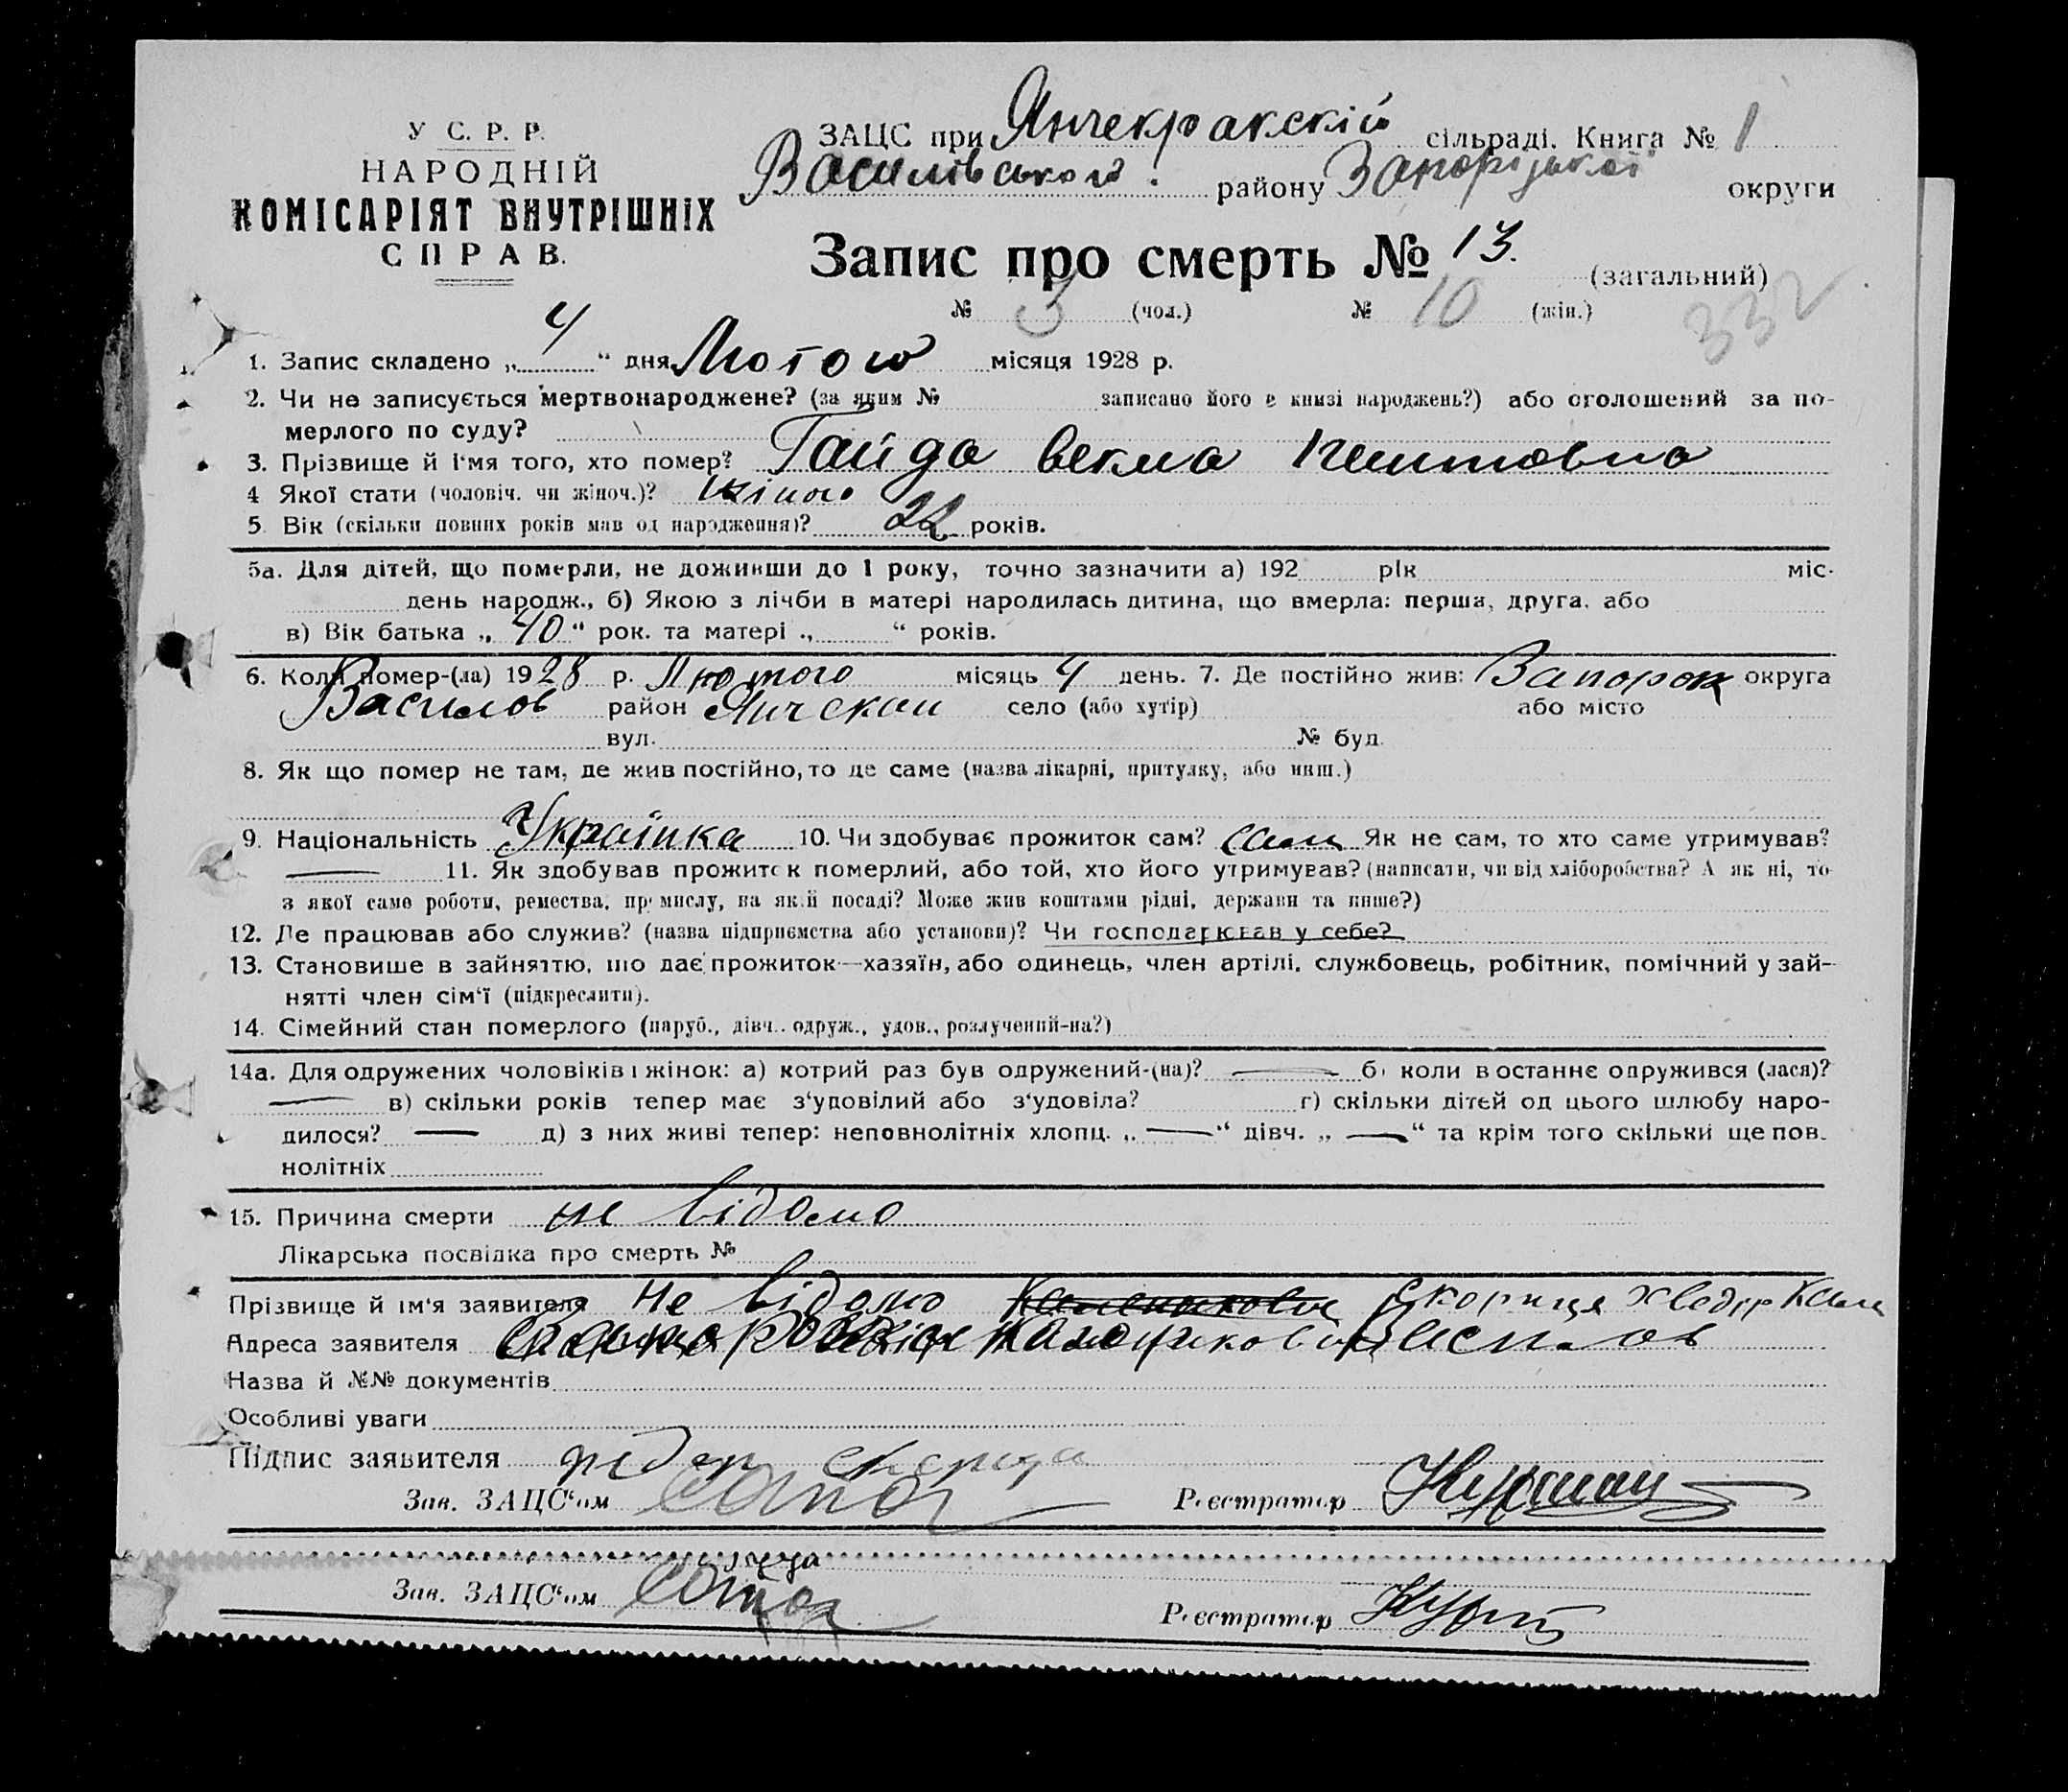 У С. Р. Р.
НАРОДНІЙ
КОМІСАРІЯТ ВНУТРІШНІХ
СПРАВ.
ЗАЦС при Янчекракскій сільраді. Книга № 1
Василівського району Запорізької округи
Запис про смерть № 13. (загальний)
№ 3 (чол.) № 10 (жін.)
332
1. Запис складено „ 4 “ дня Лютого місяця 1928 р.
2. Чи не записується мертвонароджене? (за яким № записано його в книзі народжень?) або оголошений за по-
мерлого по суду?
3. Прізвище й ім'я того, хто помер? Гайда
4 Якої стати (чоловіч. чи жіноч.)? жіночо
5. Вік (скільки повних років мав од народження)? 22 років.
5а. Для дітей, що померли, не доживши до 1 року, точно зазначити а) 192 рік міс.
день народж., б) Якою з лічби в матері народилась дитина, що вмерла: перша, друга, або
в) Вік батька „ 40 “ рок. та матері „ “ років.
6. Коли помер-(ла) 1928 р. Лютого місяць 4 день. 7. Де постійно жив: Запорож округа
Василов район село (або хутір) або місто
вул. № буд.
8. Як що помер не там, де жив постійно, то де саме (назва лікарні, притулку, або инш.)
9. Національність Українка 10. Чи здобуває прожиток сам? сам Як не сам, то хто саме утримував?
— 11. Як здобував прожиток померлий, або той, хто його утримував? (написати, чи від хліборобства? А як ні, то
з якої саме роботи, ремества, промислу, на якій посаді? Може жив коштами рідні, держави та инше?)
12. Де працював або служив? (назва підприємства або установи)? Чи господарював у себе?
13. Становище в зайняттю, що дає прожиток—хазяїн, або одинець, член артілі, службовець, робітник, помічний у зай-
нятті член сім'ї (підкреслити).
14. Сімейний стан померлого (паруб., дівч., одруж., удов., розлучений-на?)
14а. Для одружених чоловіків і жінок: а) котрий раз був одружений-(на)? — б) коли востаннє одружився (лася)?
— в) скільки років тепер має з'удовілий або з'удовіла? г) скільки дітей од цього шлюбу наро-
дилося? — д) з них живі тепер: неповнолітніх хлопц. „ — “ дівч. „ — “ та крім того скільки ще пов-
нолітніх
15. Причина смерти не відомо
Лікарська посвідка про смерть №
Прізвище й ім'я заявителя Не відомо Скориця Хведір
Адреса заявителя
Назва й №№ документів
Особливі уваги
Підпис заявителя
Зав. ЗАЦС'ом Реєстратор
Зав. ЗАЦС'ом Реєстратор